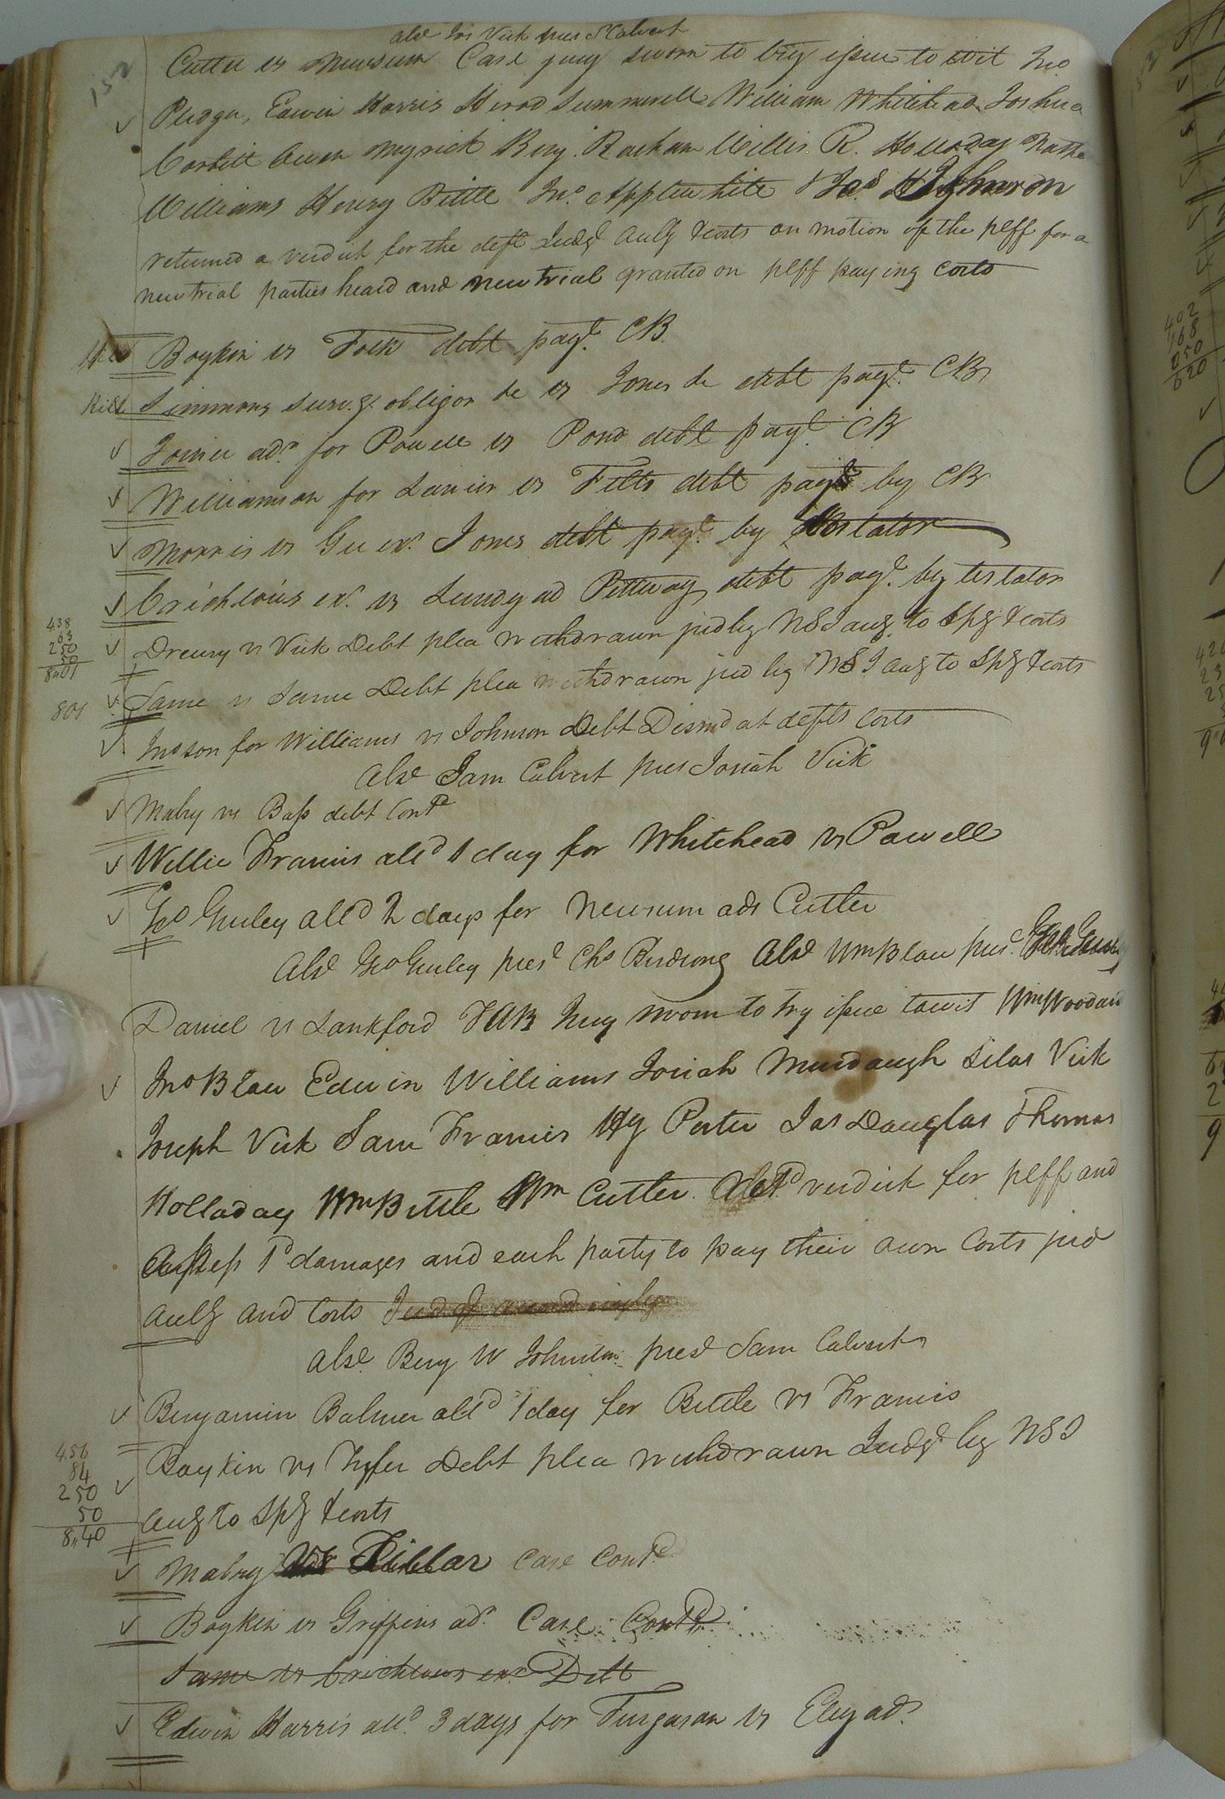 152
abse Jos Vick pres S Calvert
Cutler vs Newsum Case jury sworn to try issue to wit Jno
Pledger, Edwin Harris Herod Summerell William Whitehead Joshua
Corbitt Owen Myrick Benj. Barham Willis R. Holladay Nath
Williams Henry Bittle Jno. Applewhite & Jas. Johnson
returned a verdict for the deft Judgt &costs on motion of the plff for a
new trial parties heard and new trial granted on plff paying costs
Boykin vs Fook debt payt. CB.
Simmons survg. obligor &c vs Jones &c debt payt. CB
Joiner adr. for Powell vs Pond debt payt. CB
Williamson for Lanier vs Felts debt payt by CB
Morris vs Gee exr. Jones debt payt. by testator
Crichlow's exr. vs Lundy ad Pittway debt payt. by testator
438
63
250
50
8,,01
Drewry vs Vick Debt plea withdrawn jud by NSI to Spg &costs
801
Same vs Same Debt plea withdrawn jud by NSI to Spg &costs
Jno son for Williams vs Johnson Debt Dismd at defts Costs
Abse Sam Calvert pres Josiah Vick
Mabry vs Bass debt Contd
Willie Francis alld 1 day for Whitehead vs Powell
Jno Gurley alld 2 days for Newsum ads Cutler
Abse Jno Gurley prest Chs Birdsong Abse Wm Blow pres.
Daniel vs Lankford TAB Jury sworn to try issue towit Wm Woodard
Jno Blow Edwin Williams Josiah Murdaugh Silas Vick
Joseph Vick Sam Francis Hy Porter Jas Douglas Thomas
Holladay Wm Bittle Wm Cutler. Retd verdict for plff and
assess 1d damages and each party to pay their own Costs jud
and Costs
Abse. Benj W Johnston prest Sam Calvert
Benjamin Balmer alld 1 day for Bittle vs Francis
456
84
250
50
8,,40
Boykin vs Tyler Debt plea withdrawn Judgt by NSI
to Spg &costs
Mabry vs Dillar Case Contd
Boykin vs Griffins adr. Case Contd.
Same vs Crichlows exr Debt
Edwin Harris alld. 3 days for Furguson vs Eley adr.